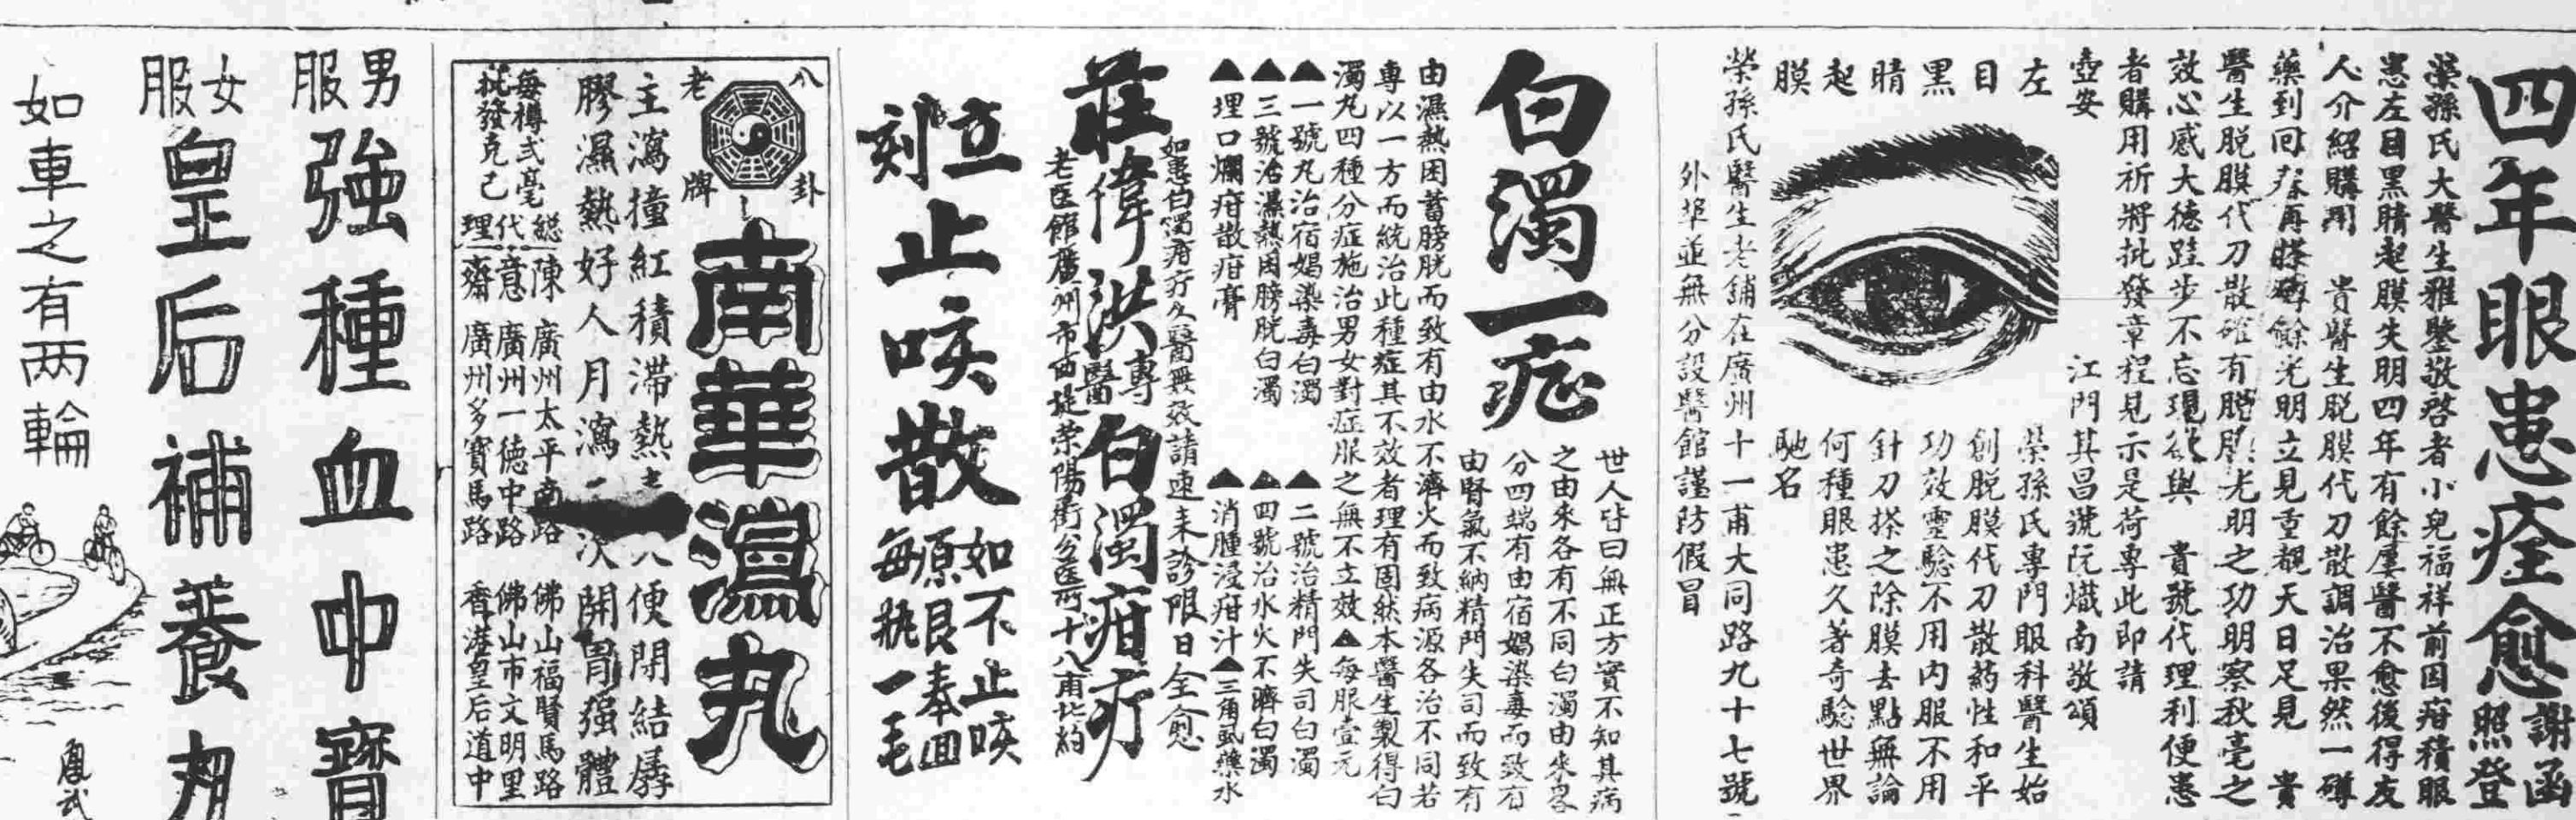 四年眼患痊愈
謝函
照登
榮孫氏大醫生雅鑒敬啓者小兒福祥前因疳積眼
患左目黑睛起膜失明四年有餘屢醫不愈後得友
人介紹購用　貴醫生脱膜代刀散調治果然一磗
藥到回春再搽磗餘光明立見重覩天日足見　貴
醫生脱膜代刀散確有膜光明之功明察秋毫之
效心感大德跬步不忘現欲與　貴號代理利便患
者購用祈將批發章程見示是荷專此即請
壺安　江門其昌號阮熾南敬頌
左目黑睛起膜
榮孫氏專門眼科醫生始
創脱膜代刀散葯性和平
功效靈驗不用内服不用
針刀搽之除膜去點無論
何種眼患久著奇驗世界
馳名
榮孫氏醫生老鋪在廣州十一甫大同路九十七號
外埠並無分設醫館謹防假冒
白濁一症
世人皆曰無正方實不知其病
之由來各有不同白濁由來畧
分四端有由宿娼染毒而致有
由腎氣不納精門失司而致有
由濕熱困蓄膀胱而致有由水不濟火而致病源各治不同若
專以一方而統治此種症其不效者理有固然本醫生製得白
濁丸四種分症施治男女對症服之無不立效▲每服壹元
▲一號丸治宿娼染毒白濁　▲二號治精門失司白濁
▲三號治濕熱困膀胱白濁　▲四號治水火不濟白濁
▲埋口爛疳散疳膏　▲消腫浸疳汁▲三角虱藥水
如患白濁疳疔久醫無效請速來診限日全愈
莊偉洪專醫白濁疳疔
老医館廣州市西堤榮陽街分医所十八甫北約
立刻止咳散
如不止咳
原艮奉回
每瓶一毛
八卦老牌
南華瀉丸
主瀉撞紅積滯熱　便閉結孱
膠濕熱好人月瀉一次開胃强體
每樽弍毫
批發克己
總代理
陳意齋
廣州太平南路　佛山福賢馬路
廣州一德中路　佛山市文明里
廣州多寳馬路　香港皇后道中
男服強種血中寶
女服皇后補養丸
如車之有两輪